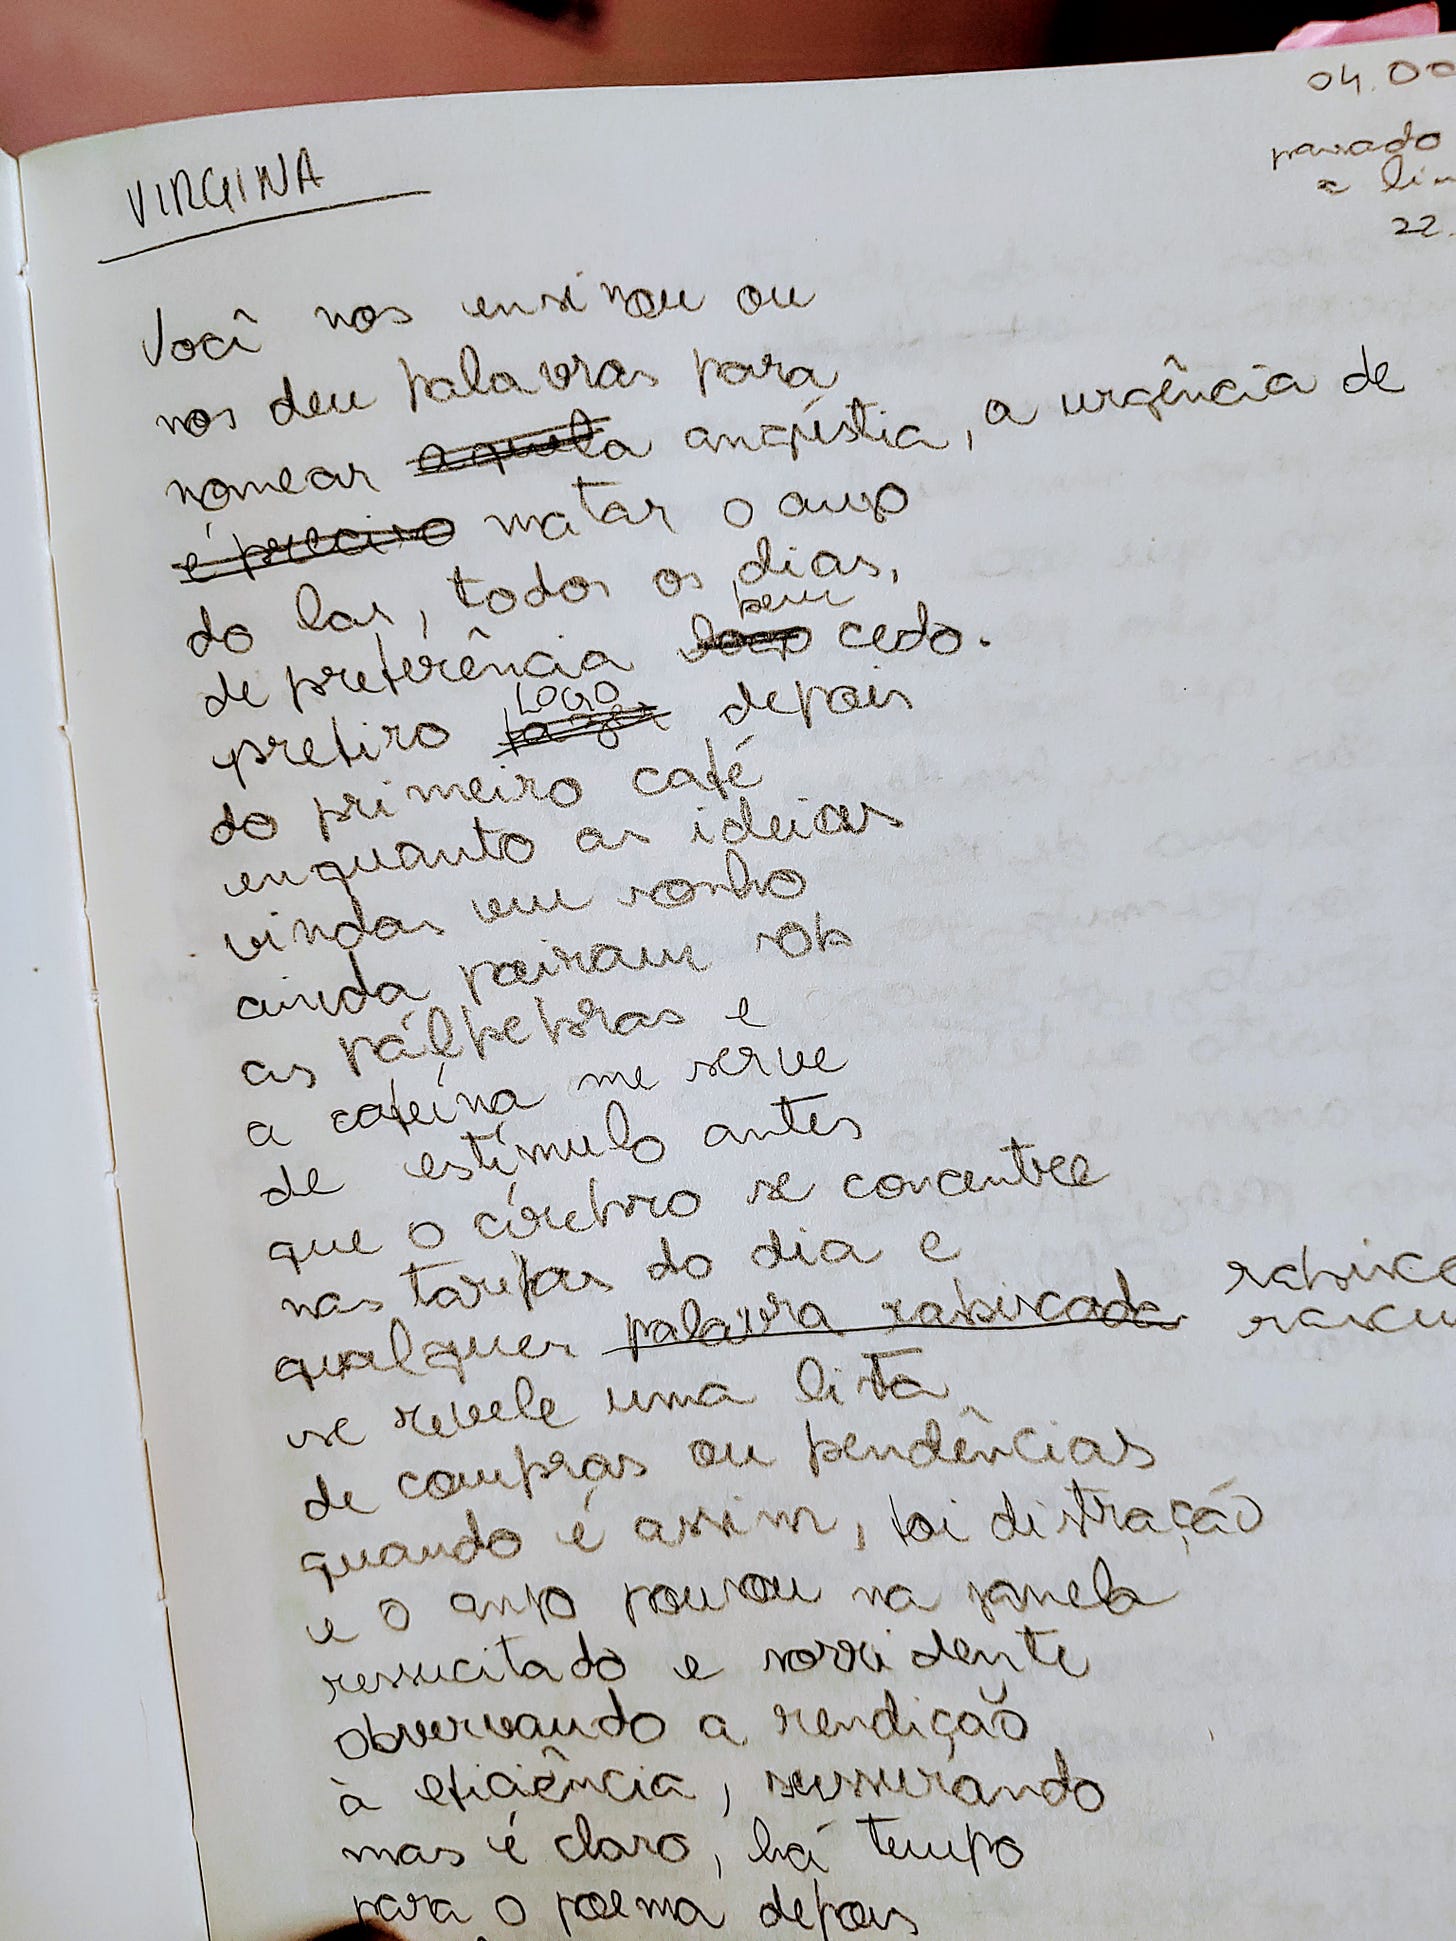 04.00
VIRGINA
passado
a li
22.
Você nos ensinou ou
nos deu palavras para
nomear aquela angústia, a urgência de
é preciso matar o anjo
do lar, todos os dias,
bem
de preferência logo cedo.
LOGO
prefiro fazer depois
do primeiro café
enquanto as ideias
vindas em sonho
ainda pairam sob
as pálpebras e
a cafeína me serve
de estímulo antes
que o cérebro se concentre
nas tarefas do dia e
qualquer palavra rabiscada rabisc
rascu
se revele uma lista
de compras ou pendências
quando é assim, foi distração
e o anjo pousou na janela
ressucitado e sorridente
observando a rendição
à eficiência, sussurando
mas é claro, há tempo
para o poema depois